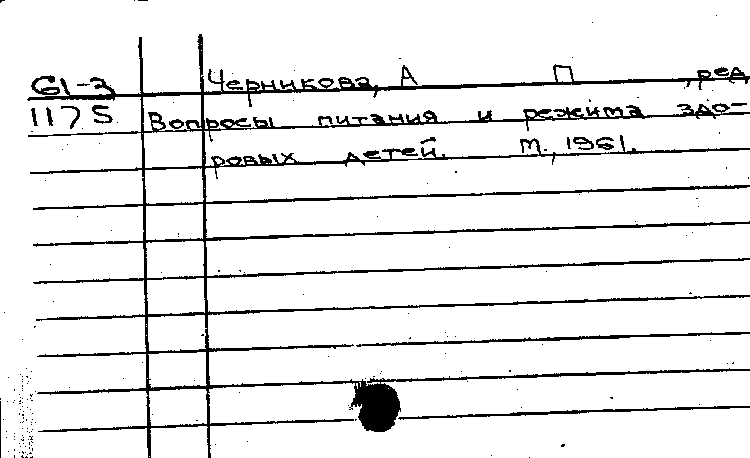 61-3 Черникова, А П , ред
1175 Вопросы питания и режима здо-
ровых детей. М., 1961.